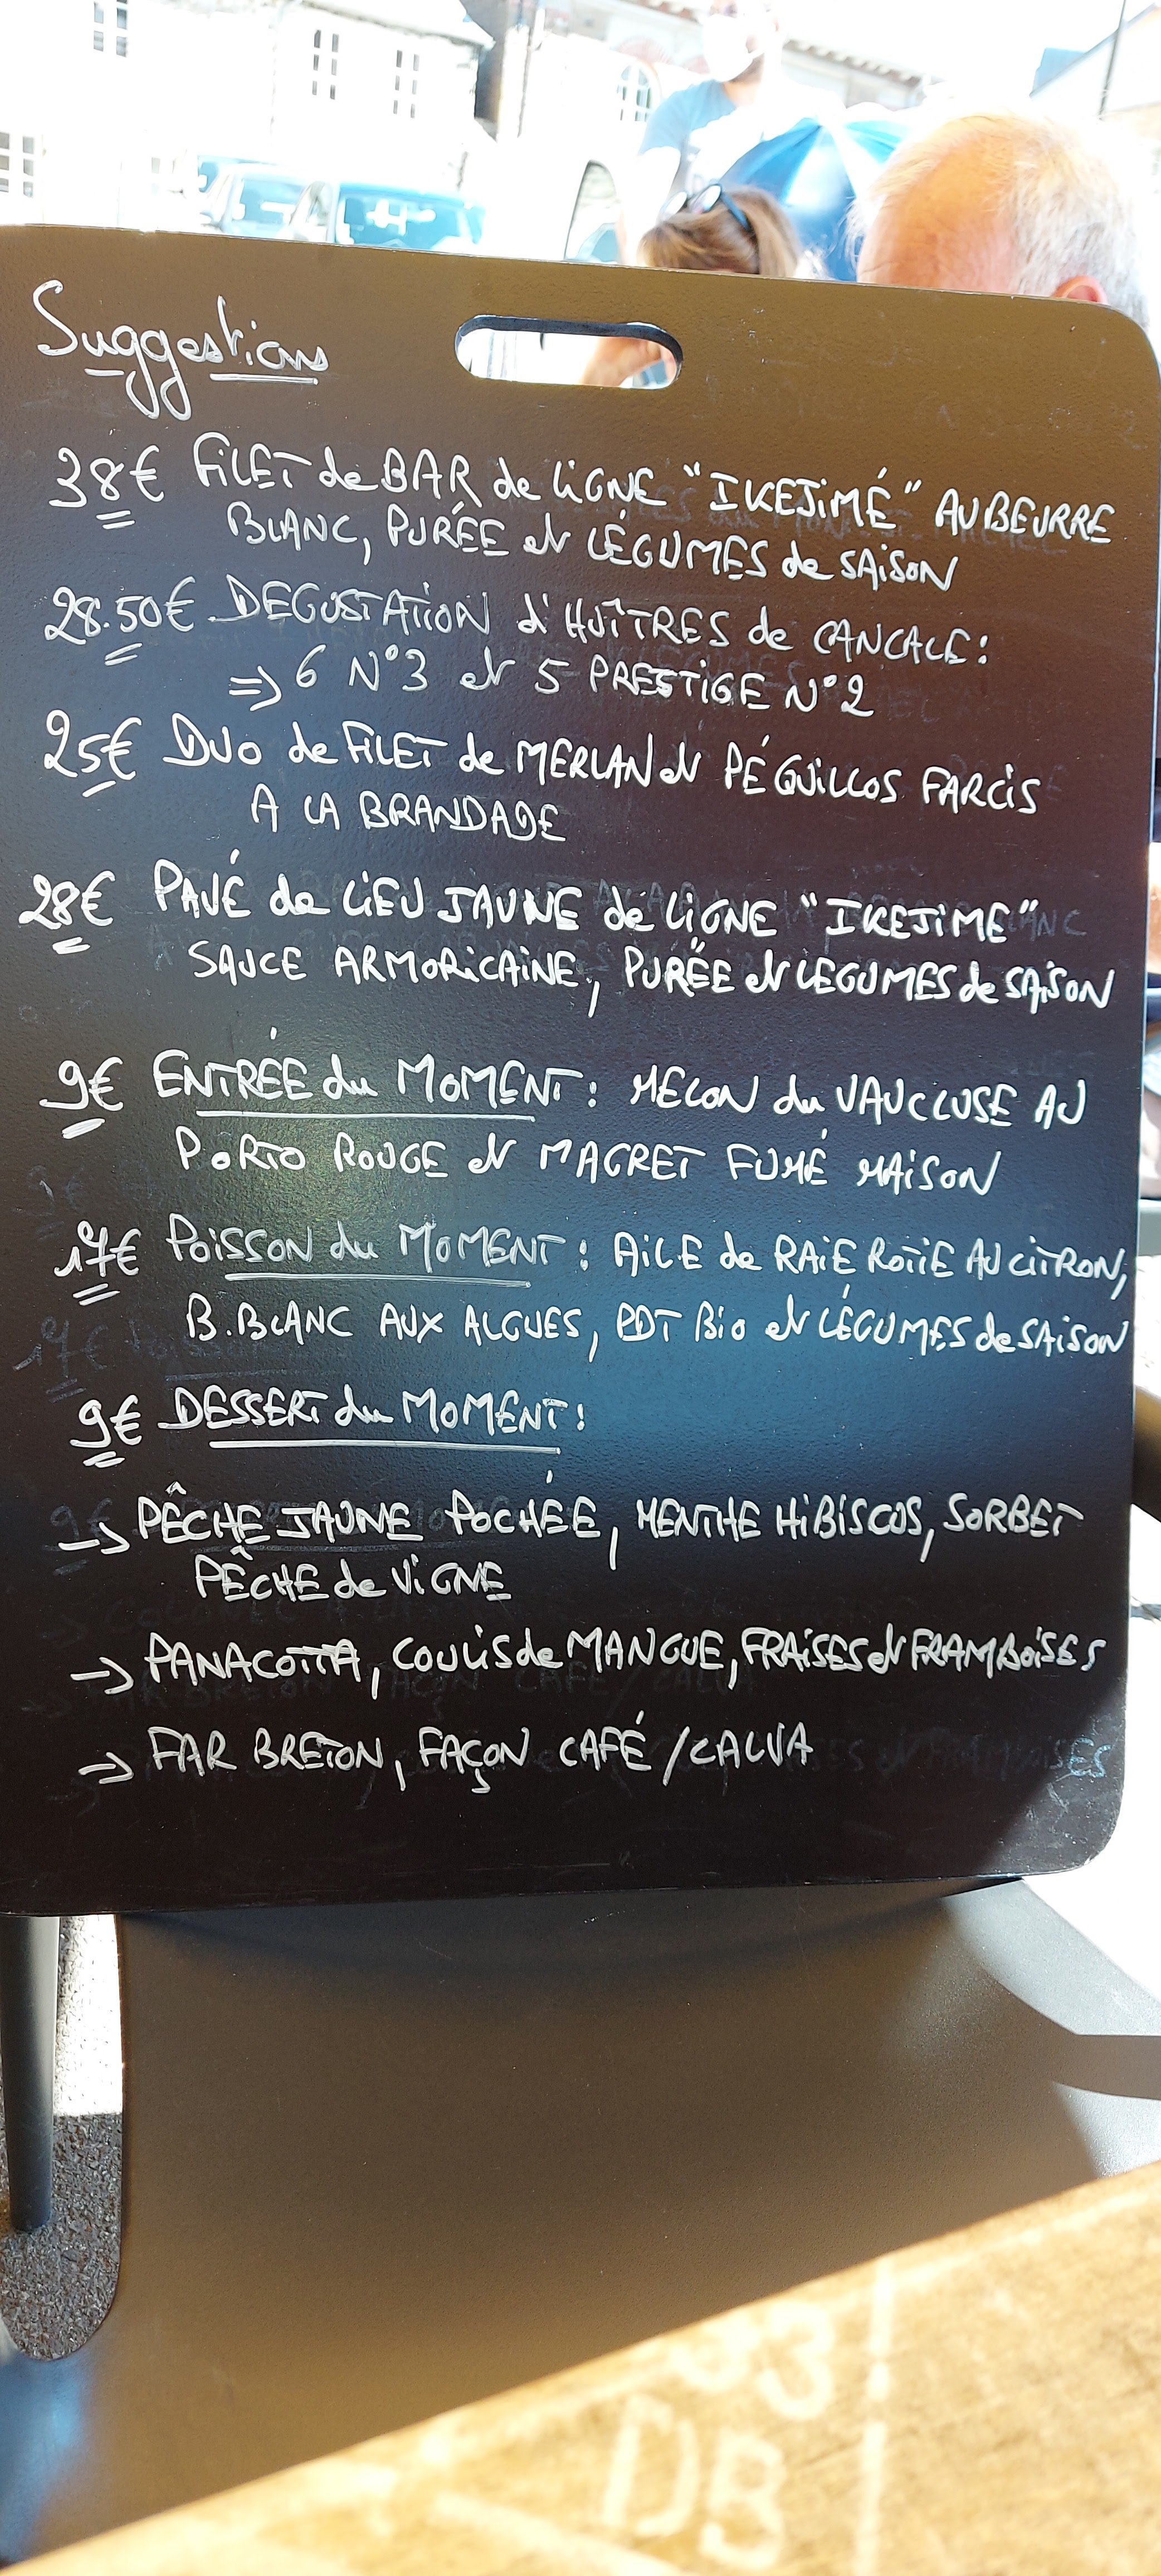 Suggestions
38€ FILET de BAR de LIGNE "IKEJIMÉ" AU BEURRE
BLANC, PURÉE et LÉGUMES de SAISON
28.50€ DEGUSTATION d'HUÎTRES de CANCALE:
=> 6 N°3 et 5 PRESTIGE N°2
25€ DUO de FILET de MERLAN et PÉQUILLOS FARCIS
A LA BRANDADE
28€ PAVÉ de LIEU JAUNE de LIGNE "IKEJIME"
SAUCE ARMORICAINE, PURÉE et LEGUMES de SAISON
9€ ENTRÉE du MOMENT: MELON du VAUCLUSE AU
PORTO ROUGE et MAGRET FUMÉ MAISON
17€ POISSON du MOMENT: AILE de RAIE ROTIE AU CITRON,
B.BLANC AUX ALGUES, PDT Bio et LÉGUMES de SAISON
9€ DESSERT du MOMENT:
-> PÊCHE JAUNE POCHÉE, MENTHE HIBISCUS, SORBET
PÊCHE de VIGNE
-> PANACOTTA, COULIS de MANGUE, FRAISES et FRAMBOISES
-> FAR BRETON, FAÇON CAFÉ/CALVA
33
DB